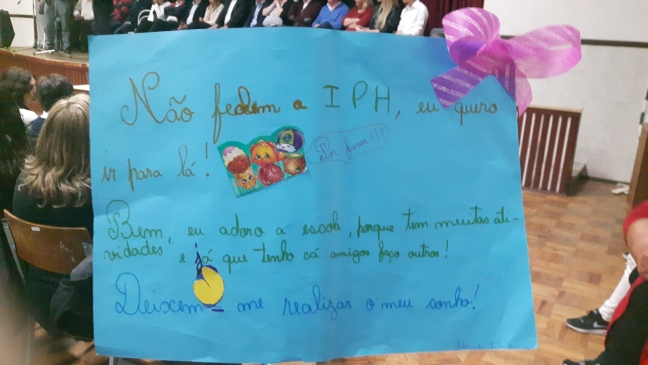 Não fedem o IPH, eu quero
ir para lá!
Por favor!!!
Bem, eu adoro a escol, porque tem muitas ati-
vidades, e já que tenho cá amigos faço outros!
Deixem-me realizar o meu sonho!